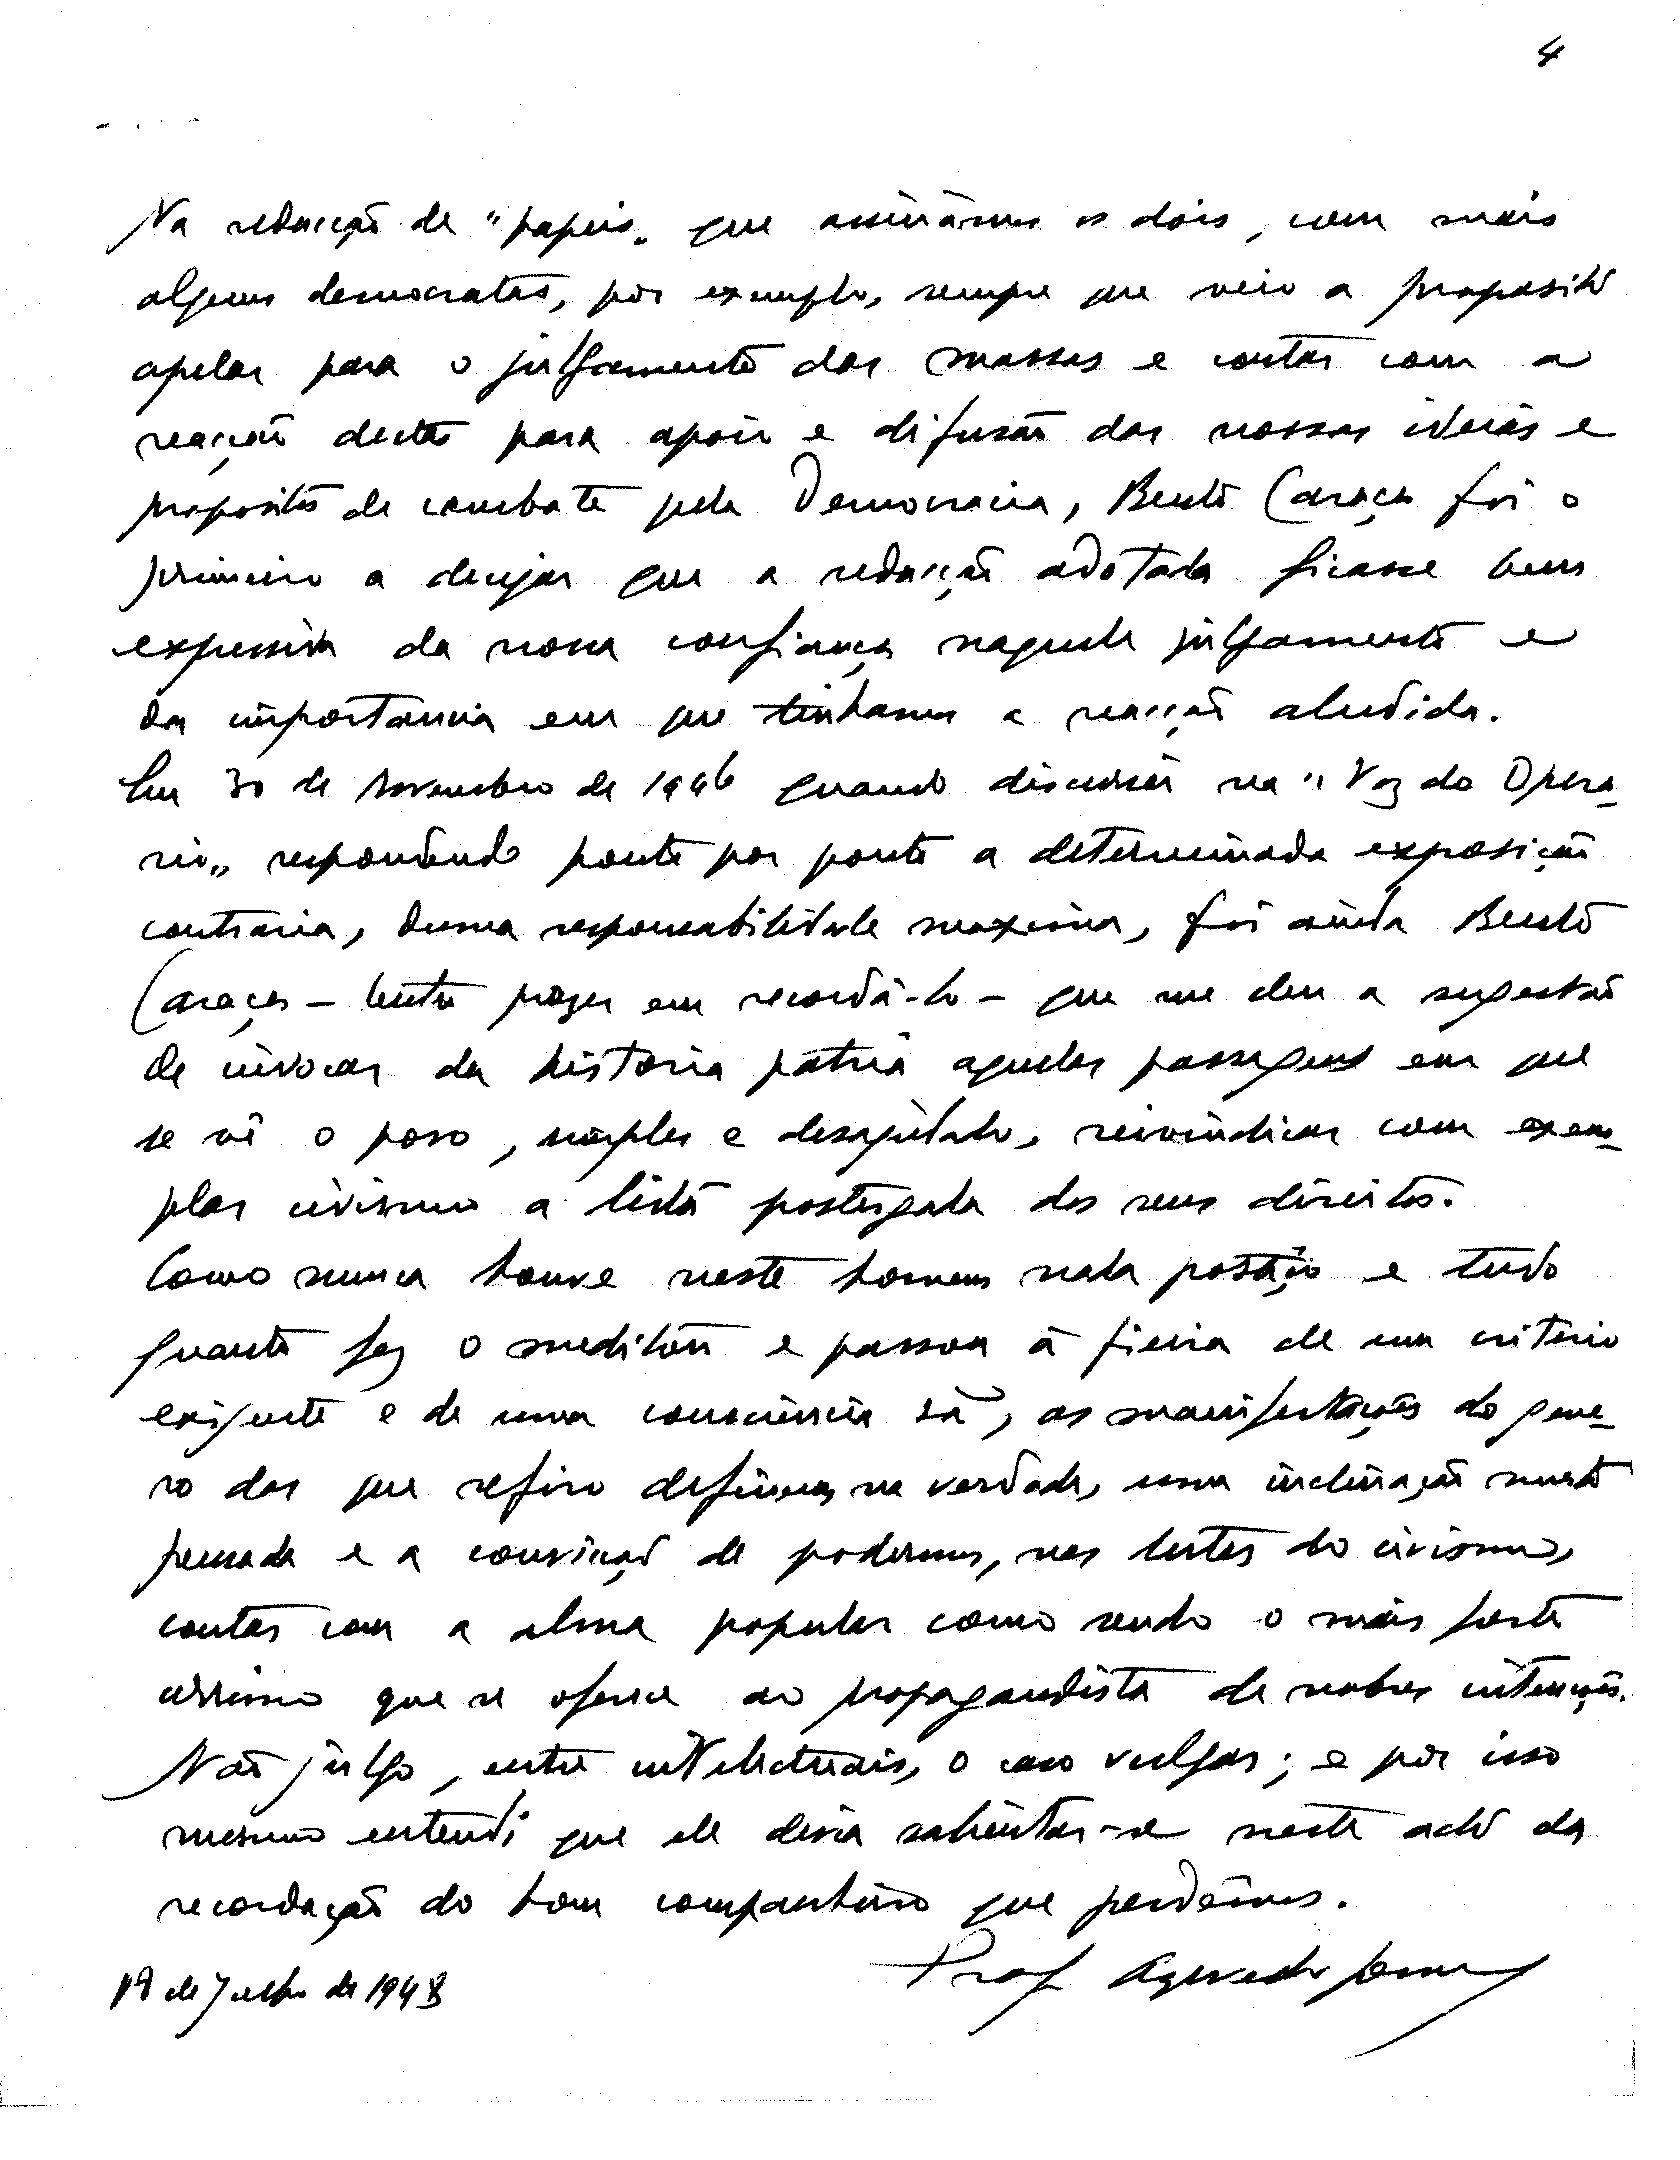 4
Na redacção de "papeis" que assinámos os dois, com mais
alguns democratas, por exemplo, sempre que veio a proposito
apelar para o julgamento das massas e contar com a
reacção destas para apoio e difusão das nossas ideias e
propositos de combate pela Democracia, Bento Caraça foi o
primeiro a desejar que a redacção adotada ficasse bem
expressiva da nossa confiança naquele julgamento e
da importancia em que tinhamos a reacção aludida.
Em 30 de Novembro de 1946 quando discursei na "Voz do Opera-
rio" respondendo ponto por ponto a determinada exposição
contraria, duma responsabilidade maxima, foi ainda Bento
Caraça – tenho prazer em recordá-lo – que me deu a sugestão
de invocar da historia pátria aquelas passagens em que
se vê o povo, simples e desajudado, reivindicar com exem-
plar civismo a lista postergada dos seus direitos.
Como nunca houve neste homem nada postiço e tudo
quanto fez o meditou e passou á fieira de um criterio
exigente e de uma consciencia sã, as manifestações do gene-
ro das que refiro definem, na verdade, uma inclinação muito
pensada e a convicção de podermos, nas lutas do civismo,
contar com a alma popular como sendo o mais forte
arrimo que se oferece ao propagandista de nobres intenções.
Não julgo, entre intelectuais, o caso vulgar; e por isso
mesmo entendi que ele devia salientar-se neste acto da
recordação do bom companheiro que perdemos.
Prof Azevedo Gomes
19 de Julho de 1948